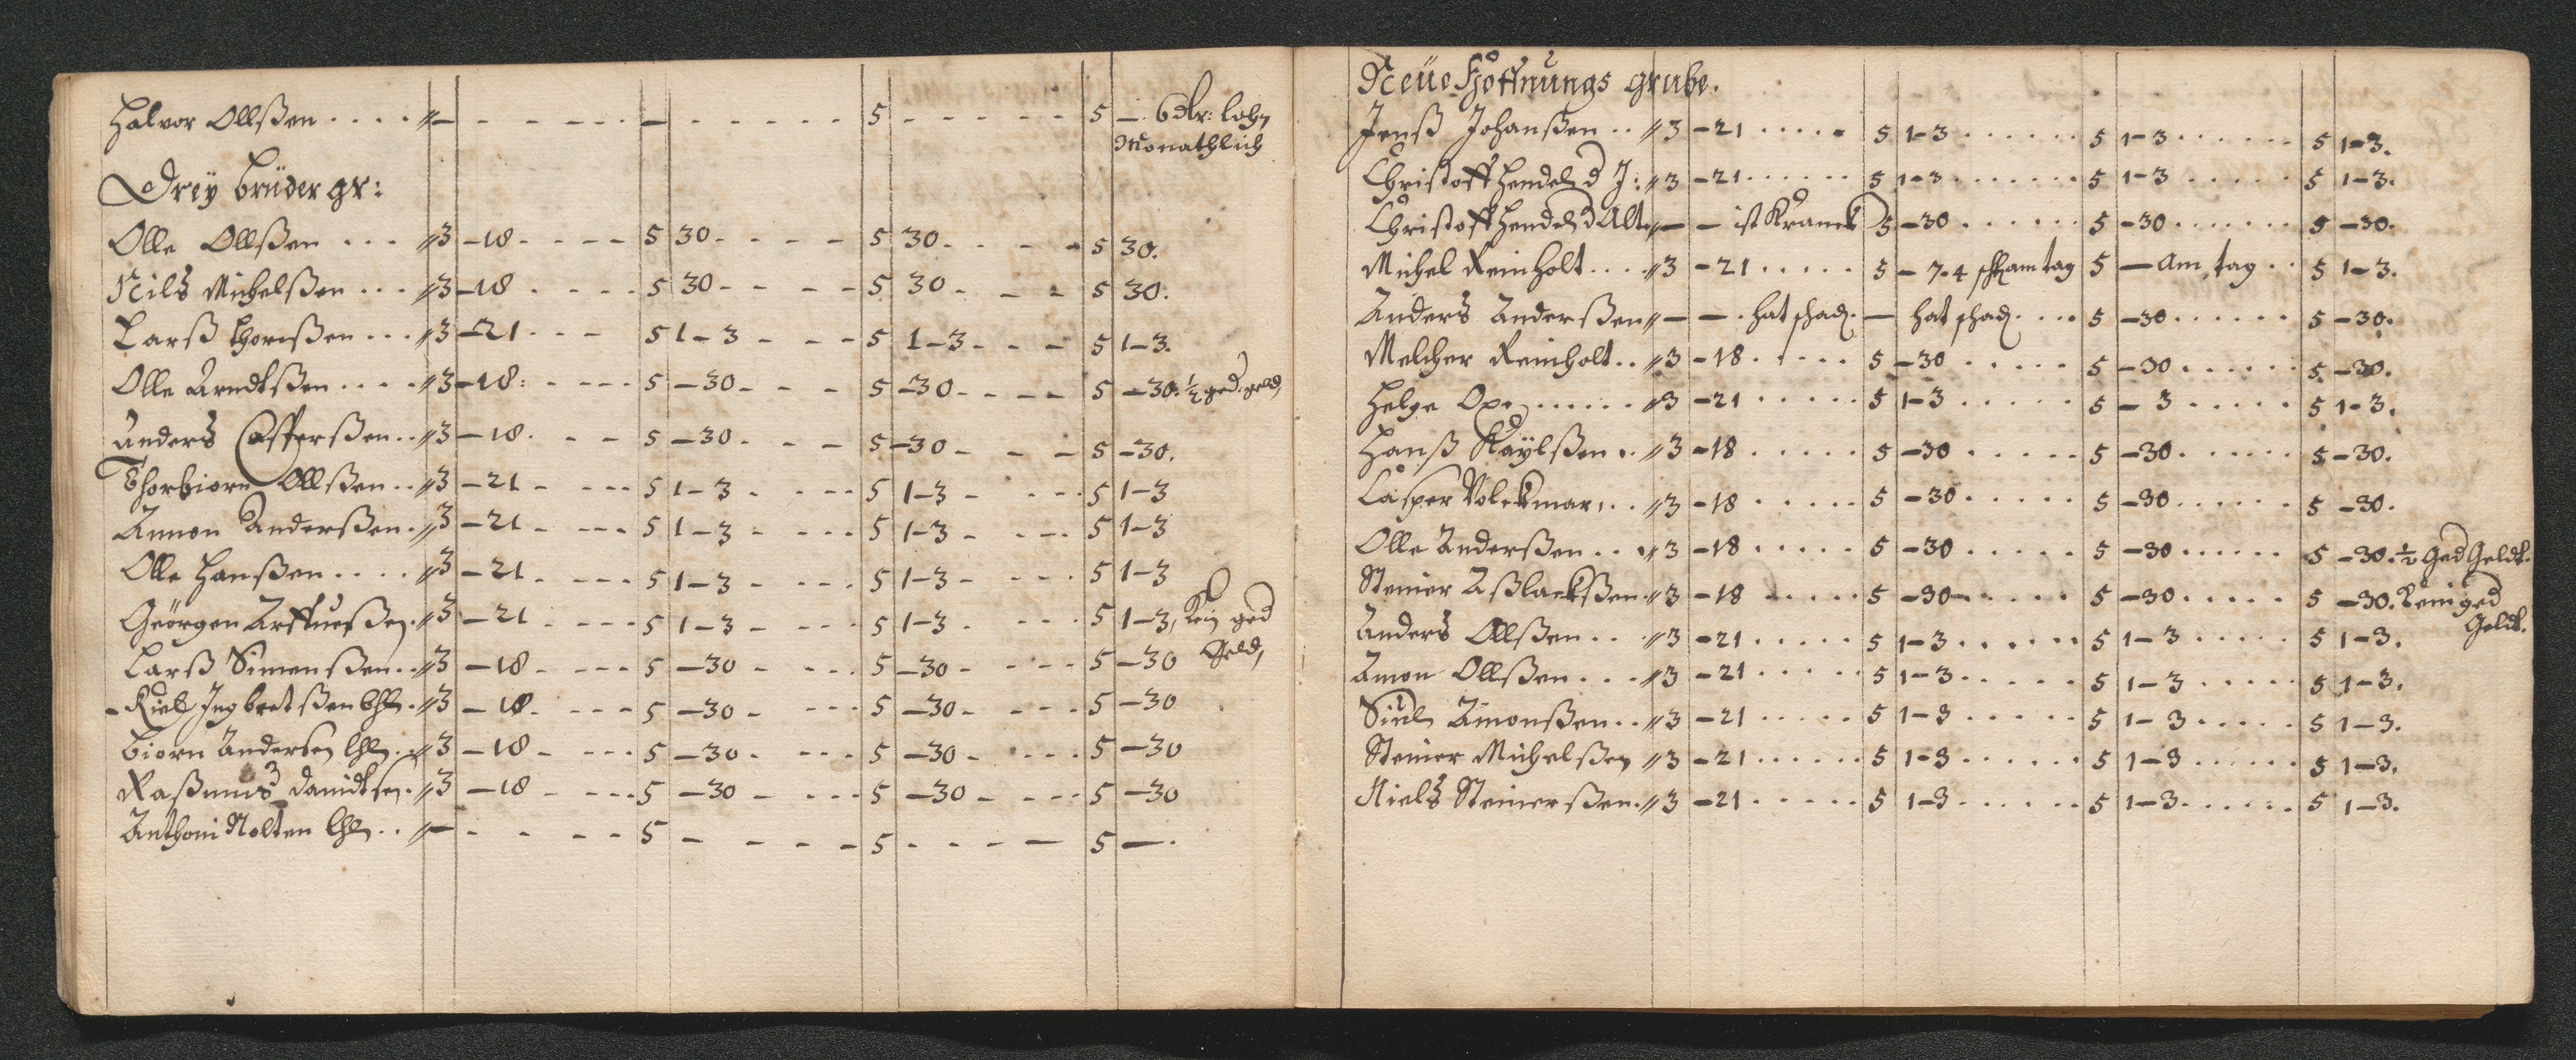 Halvor Ollßen .... — - - - - - — - - - - - 5 - - - - - 5 —. 6 dlr: lohn
Monathlich
Dreÿ brüder gr:
Olle Ollßen ... 3 -18 - - - - 5 30 - - - - 5 30 - - - - 5 30.
Nils Michelßen ... 3 -18 - - - - 5 30 - - - - 5 30 - - - 5 30.
Larß Thorißen ... 3 -21 - - - 5 1-3 - - - 5 1-3 - - - 5 1-3.
Olle Arndtßen .... 3 -18: - - - - 5 -30 - - - 5 -30 - - - - 5 -30. ½ ged: geld
Anders Casperßen .. 3 -18 - - - 5 -30 - - - 5 -30 - - - 5 -30.
Thorbiorn Ollßen .. 3 -21 - - - - 5 1-3 - - - - 5 1-3 - - - - 5 1-3
Amon Anderßen . 3 -21 - - - - 5 1-3 - - - - 5 1-3 - - - - 5 1-3
Olle Hanßen .... 3 -21 - - - - 5 1-3 - - - - 5 1-3 - - - - 5 1-3
Geörgen . 3 -21 - - - - 5 1-3 - - - - 5 1-3 - - - - 5 1-3, Kein ged
Geld,
Larß Simenßen .. 3 -18 - - - - 5 -30 - - - - 5 -30 - - - - 5 -30
Ingbretßen . 3 -18 - - - - 5 -30 - - - - 5 -30 - - - - 5 -30
Biorn Andersen .. 3 -18 - - - - 5 -30 - - - - 5 -30 - - - - 5 -30
Raßmus Davidtsen . 3 -18 - - - - 5 -30 - - - - 5 -30 - - - - 5 -30
Anthoni Nolten .. — - - - - 5 - - - - - 5 - - - — 5 —.
Neüe Hoffnungs grube.
Jenß Johanßen .. 3 -21 ..... 5 1-3 ...... 5 1-3 ...... 5 1-3.
Christoff Hendel d J: 3 -21 ...... 5 1-3 ...... 5 1-3 ..... 5 1-3.
Christoff Hendel d Alt. — — ist Kranck 5 -30 ...... 5 -30 ...... 5 -30.
Michel Reinholt .... 3 -21 ..... 5 - 7.4 am tag 5 — Am tag .. 5 1-3.
Anders Anderßen — —. hat schad. — hat schad .... 5 -30 ...... 5 -30.
Melcher Reinholt .. 3 -18 ..... 5 -30 ..... 5 -30 ...... 5 -30.
Helge ...... 3 -21 ..... 5 1-3 ..... 5 - 3 ..... 5 1-3.
Hanß .. 3 -18 ..... 5 -30 ..... 5 -30 ...... 5 -30.
Casper Volckmar ... 3 -18 ..... 5 -30 ..... 5 -30 ...... 5 -30.
Olle Anderßen ... 3 -18 ..... 5 -30 ..... 5 -30 ...... 5 -30. ½ Ged Geldt.
Stener Aßlackßen. 3 -18 ..... 5 -30 ..... 5 -30 ..... 5 -30. Kein ged
Geldt.
Anders Ollßen ... 3 -21 ..... 5 1-3 ...... 5 1-3 ..... 5 1-3.
Amon Ollßen ... 3 -21 ..... 5 1-3 ..... 5 1-3 ..... 5 1-3.
Amonßen .. 3 -21 ..... 5 1-3 ..... 5 1-3 ..... 5 1-3.
Stener Michelßen 3 -21 ...... 5 1-3 ...... 5 1-3 ...... 5 1-3.
Niels Steinerßen. 3 -21 ..... 5 1-3 ...... 5 1-3 ...... 5 1-3.